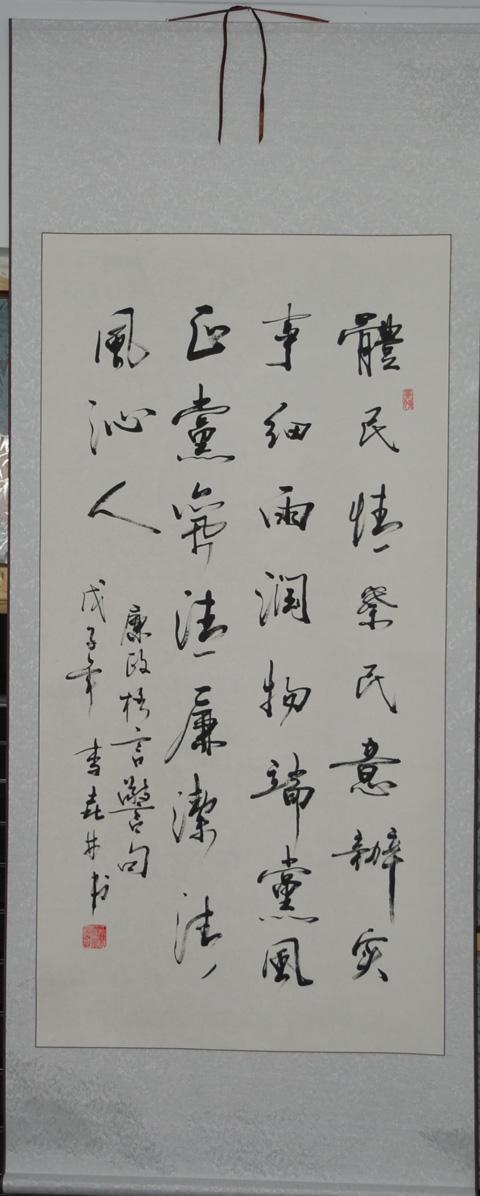 體民情察民意辦实
事细雨润物端黨風
正黨清廉潔清
風沁人
廉政格言警句
戊子年 李井书